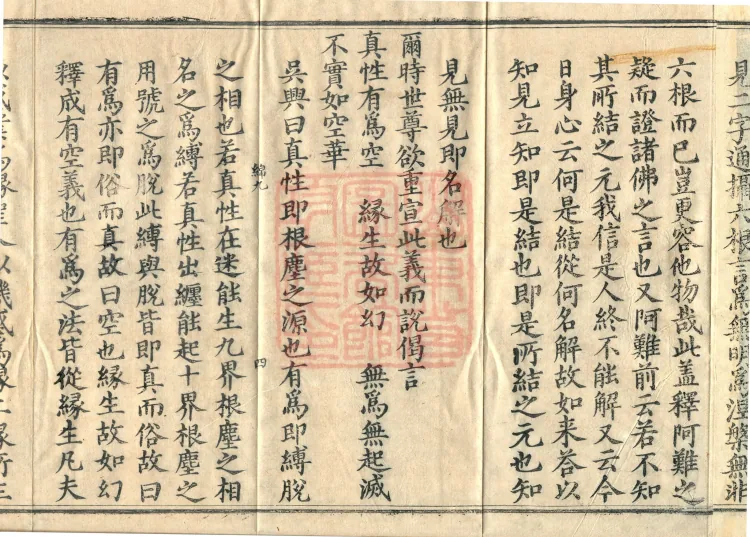 見二字通攝六根言為無明為涅槃無非
六根而已豈更容他物哉此盖釋阿難之
疑而證諸佛之言也又阿難前云若不知
其所結之元我信是人終不能解又云今
日身心云何是結從何名解故如来荅以
知見立知即是結也即是所結之元也知
見無見即名解也
爾時世尊欲重宣此義而說偈言
真性有為空　緣生故如幻　無為無起滅
不實如空華
吳興曰真性即根塵之源也有為即縛脫
綿九　四
之相也若真性在迷能生九界根塵之相
名之為縛若真性出纏能起十界根塵之
用號之為脫此縛與脫皆即真而俗故曰
有為亦即俗而真故曰空也緣生故如幻
釋成有空義也有為之法皆從緣生凡夫